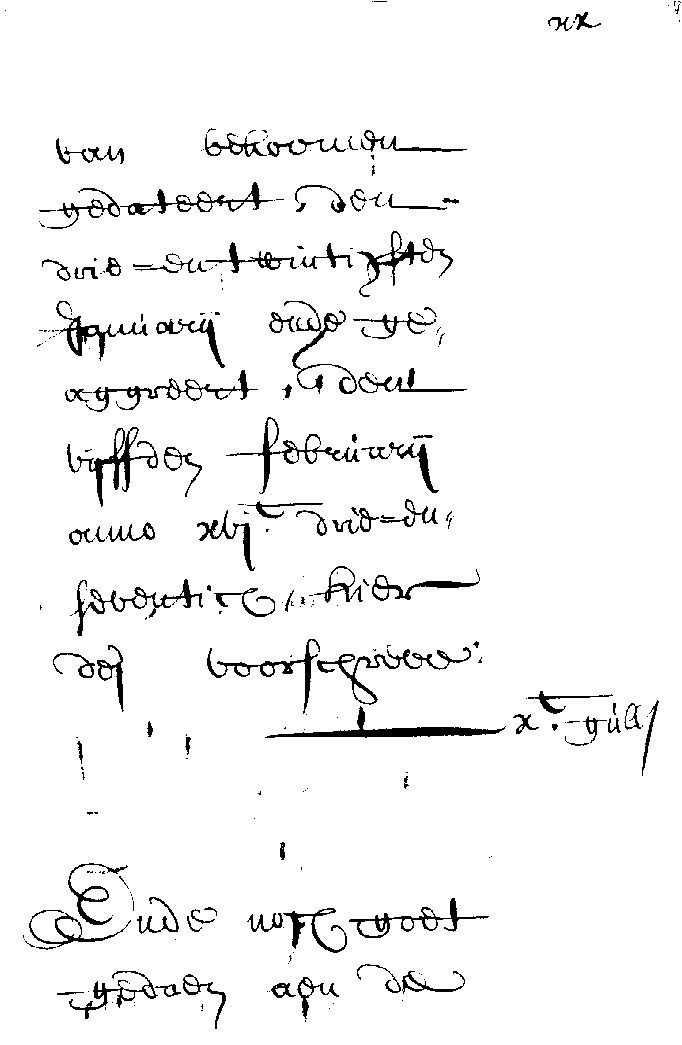 xx
van bekoomen
gedateert, den
drie=en twintichsten
January ende ge„
aggreert, den
vijffden february
anno xvjc. drie=en„
seventich, hier
des voorschreve:
xc. gull
Ende noch goet
gedaen aen de